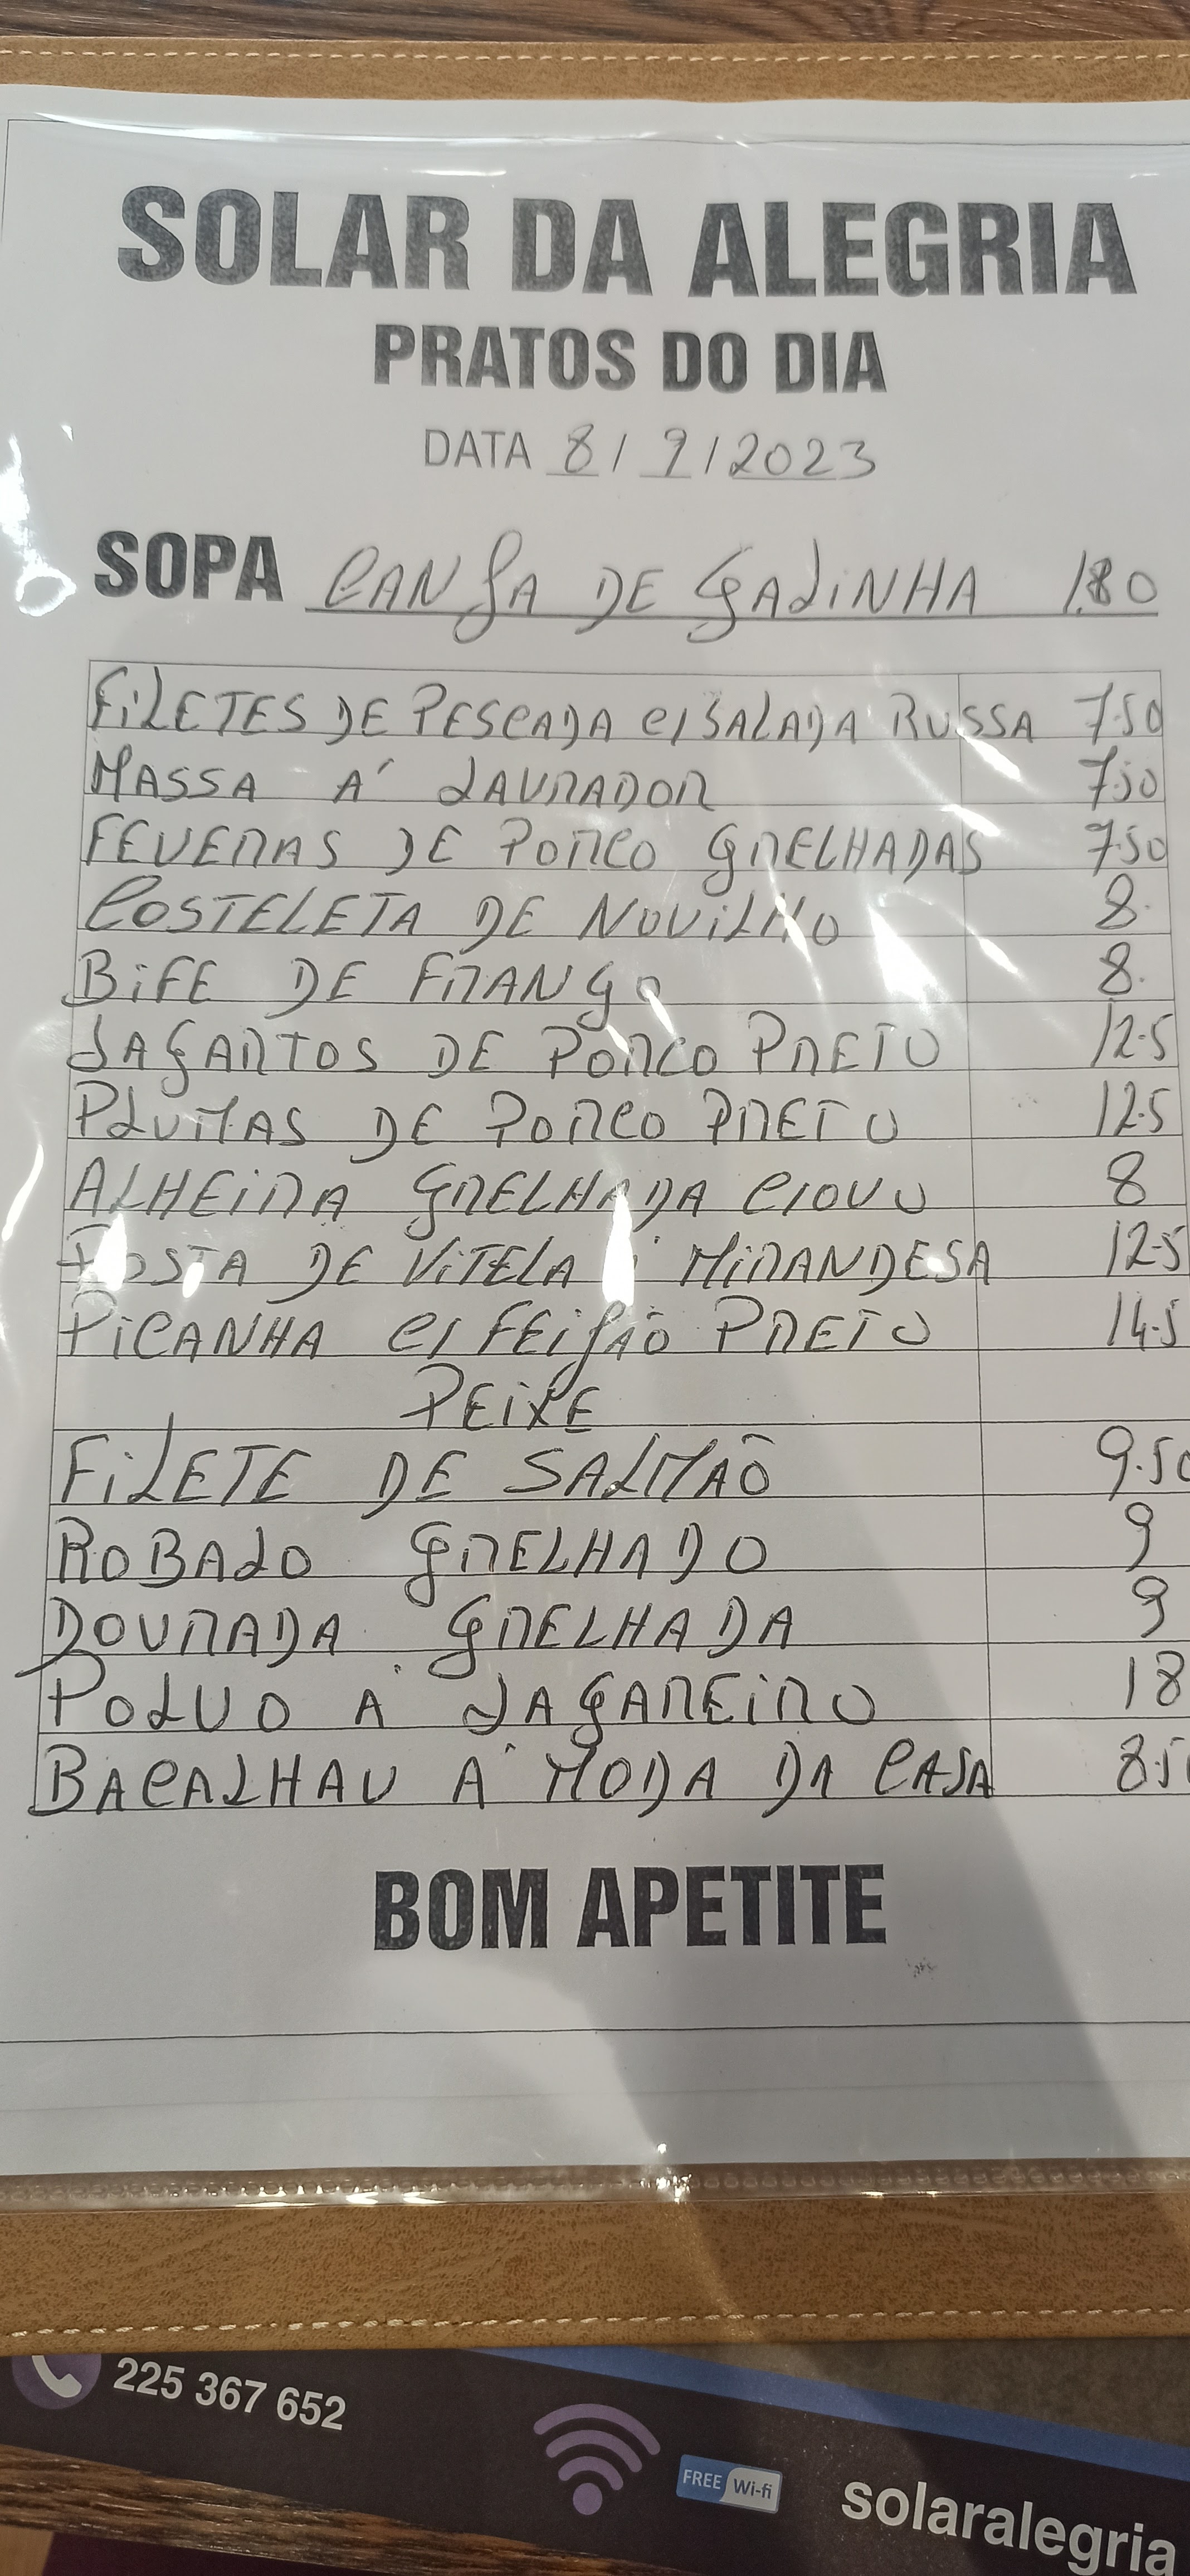 SOLAR DA ALEGRIA
PRATOS DO DIA
DATA 8/9/2023
SOPA CANJA DE GALINHA 1.80
FILETES DE PESCADA C/SALADA RUSSA 7.50
MASSA Á LAVRADOR 7.50
FEVERAS DE PORCO GRELHADAS 7.50
COSTELETA DE NOVILHO 8.
BIFE DE FRANGO 8.
LAGARTOS DE PORCO PRETO 12.5
PLUMAS DE PORCO PRETO 12.5
ALHEIRA GRELHADA C/OVO 8
POSTA DE VITELA MIRANDESA 12.5
PICANHA C/ FEIJÃO PRETO 14.5
PEIXE
FILETE DE SALMÃO 9.50
ROBALO GRELHADO 9
DOURADA GRELHADA 9
POLVO A LAGAREIRO 18
BACALHAU A MODA DA CASA 8.5
BOM APETITE
225 367 652
FREE Wi-fi
solaralegria